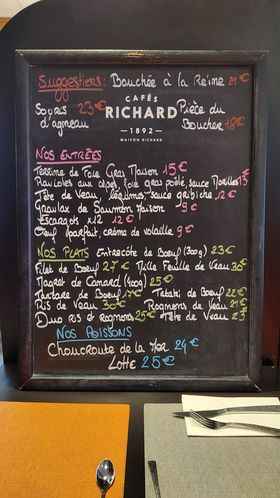 Suggestions: Bouchée à la Reine 21€
Souris 23€
d'agneau
CAFÉS
RICHARD
1892
MAISON RICHARD
Pièce du
Boucher 18€
NOS ENTRÉES
Terrine de Foie Gras Maison 15€
Ravioles aux cèpes, foie gras poêlé, sauce Morilles 15€
Tête de Veau, légumes, sauce gribiche 12€
Gravlax de Saumon Maison 9€
Escargots x12 12€
Oeuf parfait, crème de volaille 9€
NOS PLATS Entrecôte de Boeuf (300g) 23€
Filet de Boeuf 27€ Mille Feuille de Veau 30€
Magret de Canard (400g) 25€
Tartare de Boeuf 17€ Tataki de Boeuf 22€
Ris de Veau 30€ Rognons de Veau 21€
Duo Ris et Rognons 25€ Tête de Veau 23€
NOS POISSONS
Choucroute de la Mer 24€
Lotte 25€